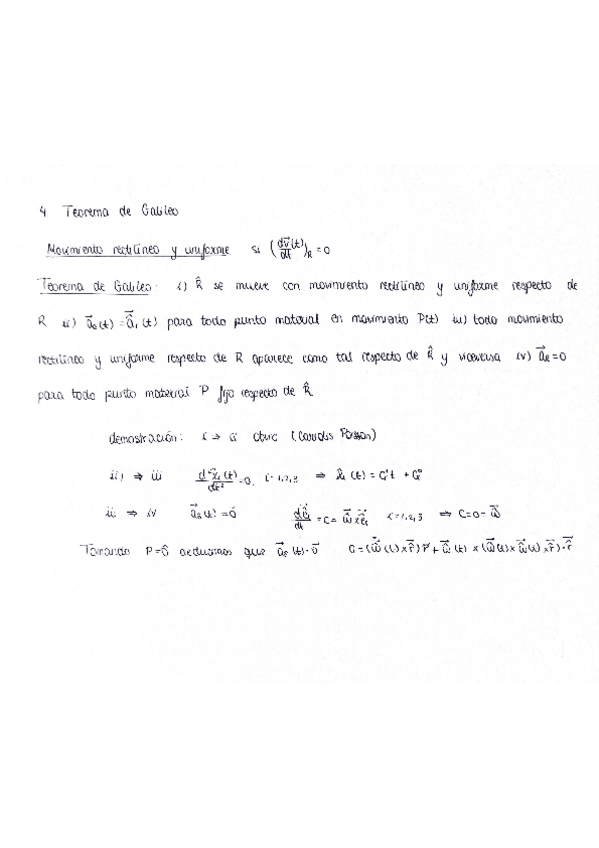 4 Teorema de Galileo
Movimiento rectilíneo y uniforme si (dv⃗(t)/dt)_R = 0
Teorema de Galileo: i) R̂ se mueve con movimiento rectilíneo y uniforme respecto de
R ii) a⃗_R(t) = a⃗_R̂(t) para todo punto material en movimiento P(t) iii) todo movimiento
rectilíneo y uniforme respecto de R aparece como tal respecto de R̂ y viceversa iv) a⃗_R = 0
para todo punto material P fijo respecto de R̂
demostración: i ⇒ ii obvio (Coriolis Poisson)
ii) ⇒ iii d²x̂_i(t)/dt² = 0, i = 1,2,3 ⇒ x̂_i(t) = C_i¹t + C_i⁰
iii ⇒ iv a⃗_R(t) = 0⃗ i = 1,2,3
Tomando P = Ô deducimos que a⃗_R(t) = 0⃗